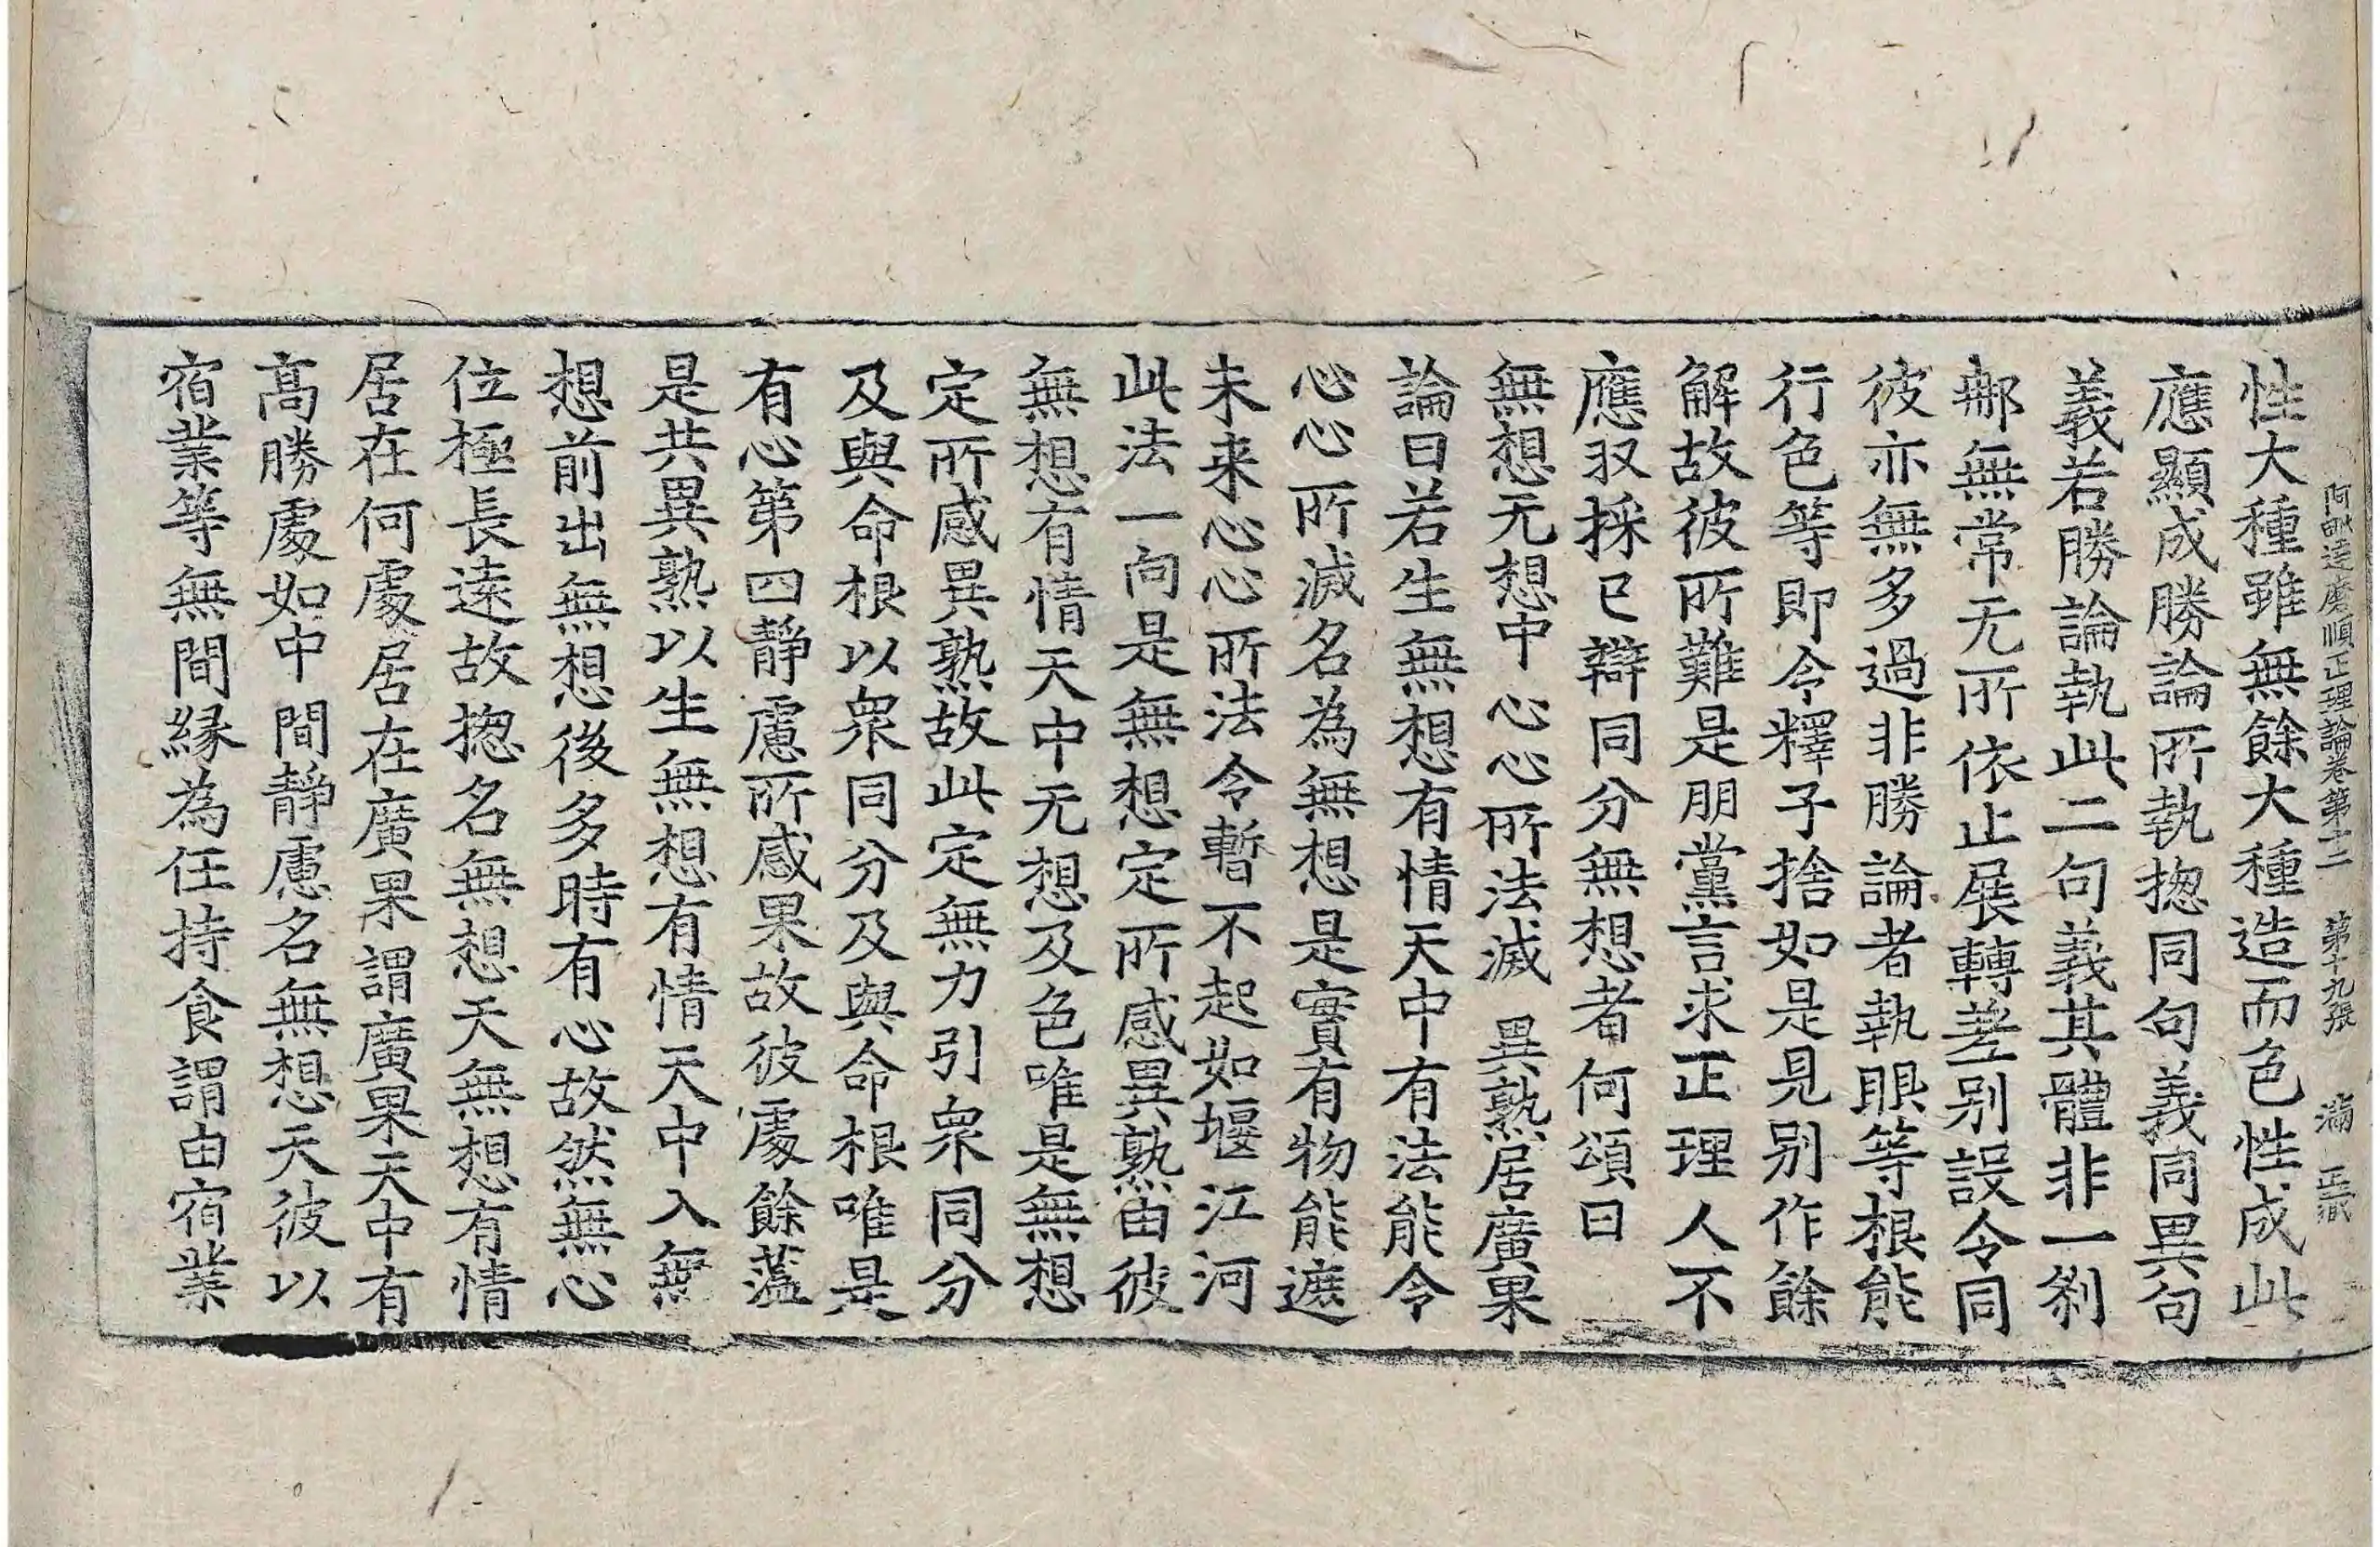 阿毗達磨順正理論卷第十二 第十九張 滿
性大種雖無餘大種造而色性成此
應顯成勝論所執揔同句義同異句
義若勝論執此二句義其體非一剎
那無常无所依止展轉差別設令同
彼亦無多過非勝論者執眼等根能
行色等即令釋子捨如是見別作餘
解故彼所難是朋黨言求正理人不
應収採已辯同分無想者何頌曰
無想无想中 心心所法滅 異熟居廣果
論曰若生無想有情天中有法能令
心心所滅名為無想是實有物能遮
未来心心所法令暫不起如堰江河
此法一向是無想定所感異熟由彼
無想有情天中无想及色唯是無想
定所感異熟故此定無力引衆同分
及與命根以衆同分及與命根唯是
有心第四靜慮所感果故彼處餘蘊
是共異熟以生無想有情天中入無
想前出無想後多時有心故然無心
位極長遠故揔名無想天無想有情
居在何處居在廣果謂廣果天中有
高勝處如中間靜慮名無想天彼以
宿業等無間縁為任持食謂由宿業